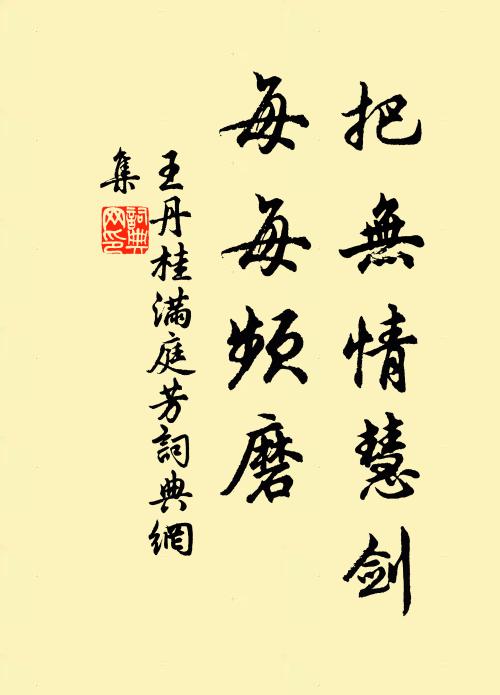 把無情慧劍
每每頻磨
王丹桂滿庭芳詞典網
集
詞典
网印